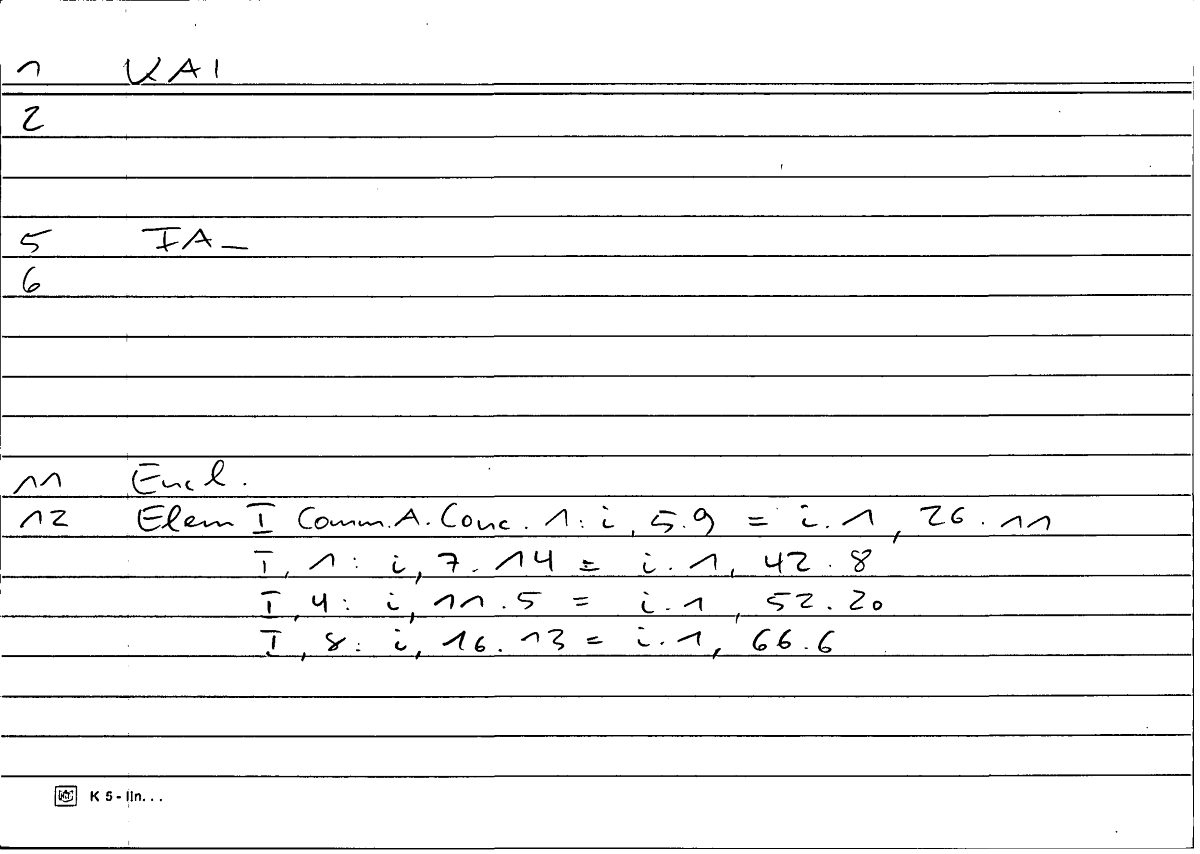 1 KAI
2
5 IA_
6
11 Eucl.
12 Elem I Comm.A.Conc. 1: i, 5.9 = i.1, 26.11
I, 1: i, 7.14 = i.1, 42.8
I, 4: i, 11.5 = i.1, 52.20
I, 8: i, 16.13 = i.1, 66.6
K 5 - lin. . .